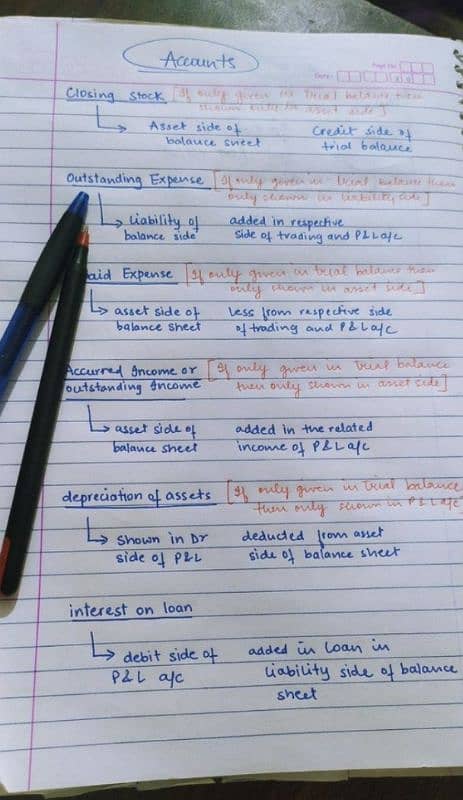 Accounts
Page No.
Date:
Closing stock [If only given in trial balance then
shown only in asset side]
Asset side of Credit side of
balance sheet trial balance
Outstanding Expense [If only given in trial balance then
only shown in liability side]
Liability of added in respective
balance side side of trading and P&L a/c
aid Expense [If only given in trial balance then
only shown in asset side]
asset side of Less from respective side
balance sheet of trading and P&L a/c
Accurred Income or [If only given in Trial balance
outstanding Income then only shown in asset side]
asset side of added in the related
balance sheet income of P&L a/c
depreciation of assets [If only given in trial balance
then only shown in P&L a/c
Shown in Dr deducted from asset
side of P&L side of balance sheet
interest on loan
debit side of added in loan in
P&L a/c liability side of balance
sheet